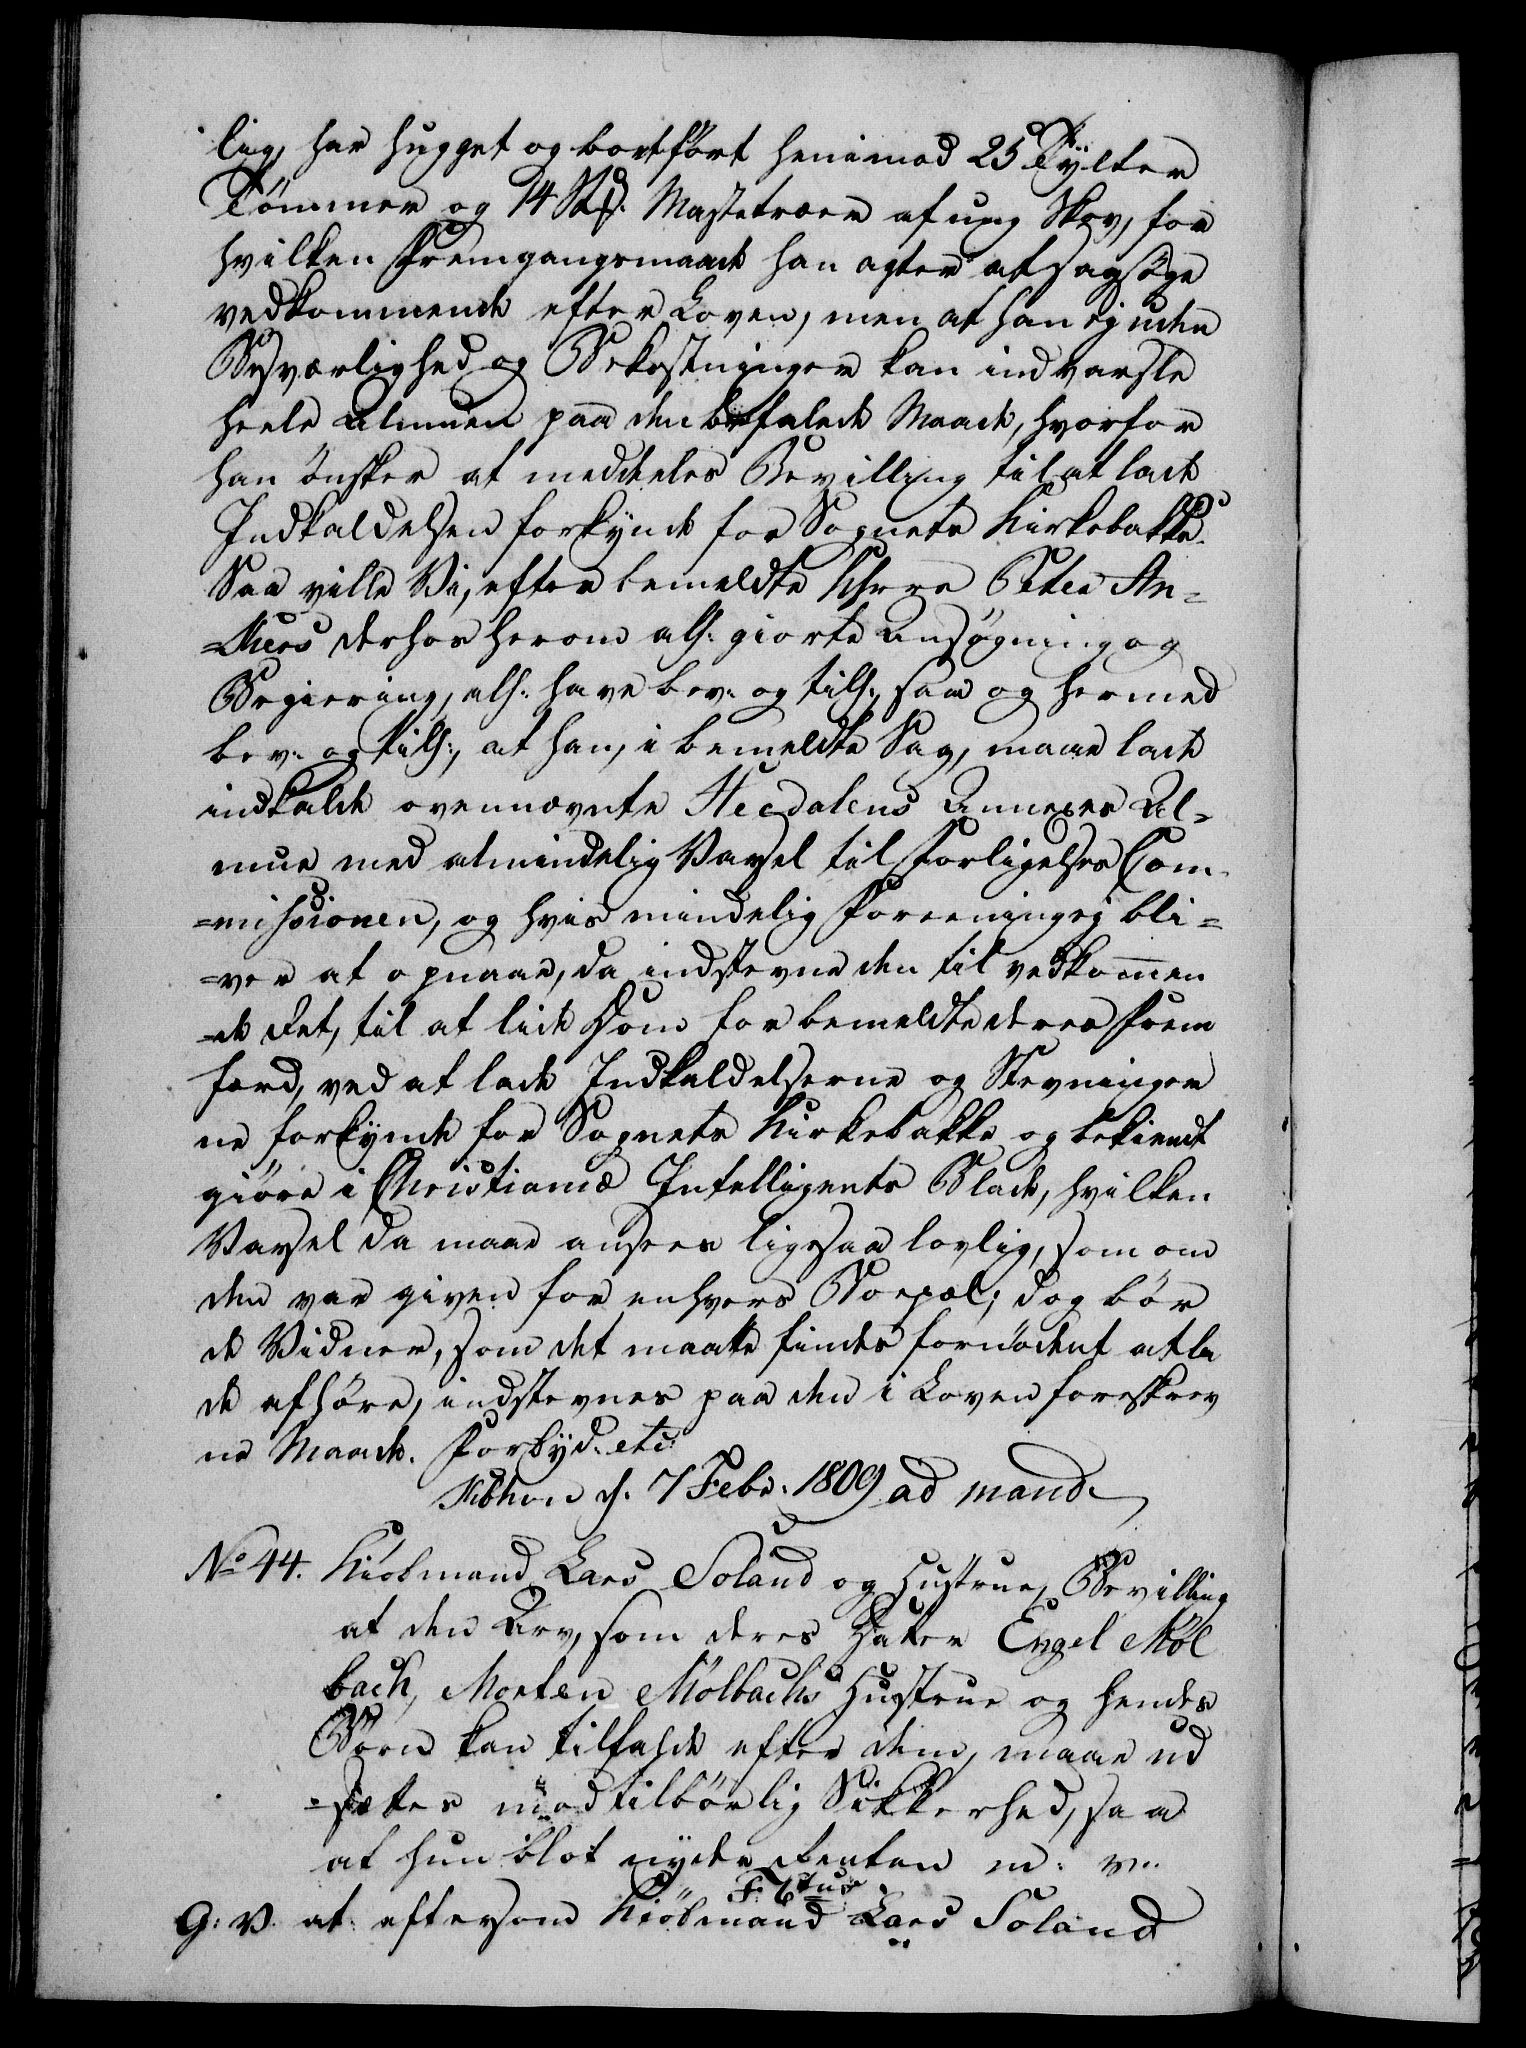 lig, har hugget og bortført henimod 25 Tylter
Tømmer og 14 Stk. Mastetræer af ung Skov, for
hvilken Fremgangsmaade han agter at sagsøge
vedkommende efter Loven, men at han ej uden
Besværlighed og Bekostninger kan indvarsle
heele Almuen paa den befalede Maade, hvorfor
han ønsker at meddeles Bevilling til at lade
Indkaldelsen forkynde for Sognets Kirkebakke.
Saa ville Vi, efter bemeldte Hrr Peter An=
=kers derhos herom alh: giorte Ansøgning og
Begiering, alh: have bev: og tilh:, saa og hermed
bev: og tilh:, at han, i bemeldte Sag, maae lade
indkalde ovennævnte Heedalens Annexes Al=
mue med almindelig Varsel til Forligelses Com
=missionen, og hvis mindelig Foreening ej bli=
=ver at opnaae, da indstevne den til vedkommen
=de Ret, til at lide Dom for bemeldte deres Frem
færd, ved at lade Indkaldelserne og Stevninger
ne forkynde for Sognets Kirkebakke og bekiendt
giøre i Christianiæ Intelligents Blade, hvilken
Varsel da maae ansees ligesaa lovlig, som om
den var given for enhvers Boepæl; dog bør
de Vidner, som det maatte findes fornødent at la
de afhøre, indstevnes paa den i Loven foreskrev
ne Maade. Forbyd. etc:
Kbhvn d. 7 Febr. 1809 ad mand.
No 44. Kiøbmand Lars Soland og Hustrue, Bevilling
at den Arv, som deres Datter Engel Møl
bach, Morten Mølbachs Hustrue og hendes
Børn kan tilfalde efter dem, maae ud
=sættes mod tilbørlig Sikkerhed, saa
at hun blot nyder Renten m: v:
F: 6tus
G: V. at: eftersom Kiøbmand Lars Soland